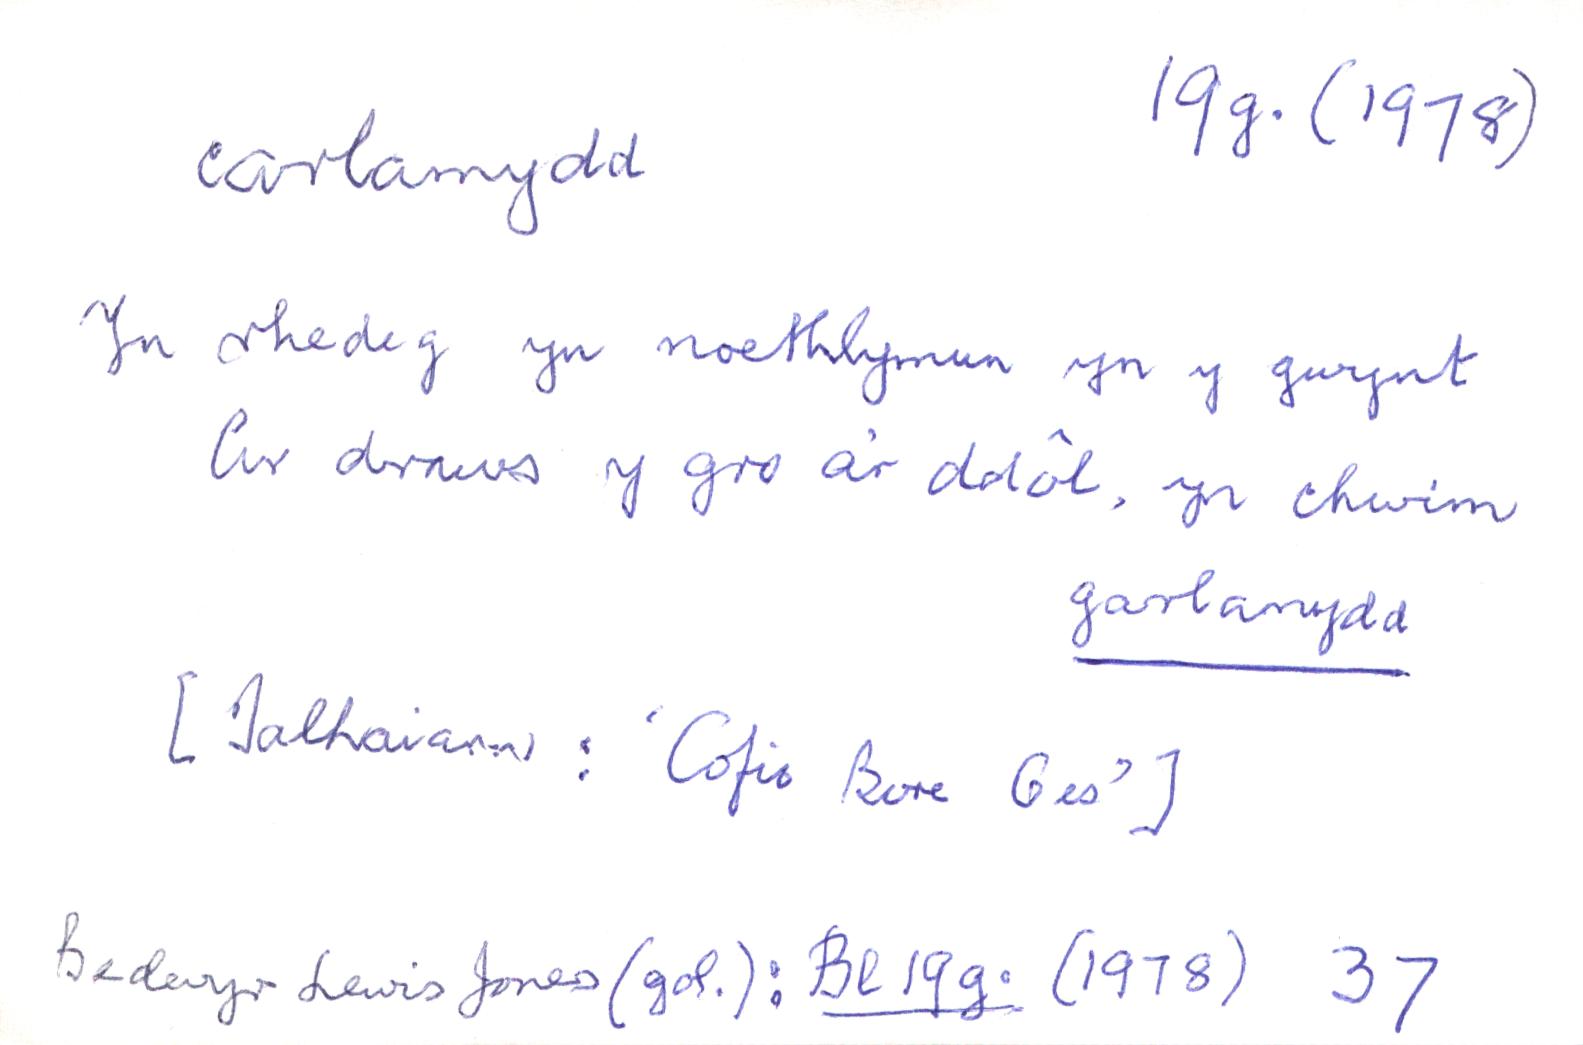 19g. (1978)
carlamydd
Yn rhedeg yn noethlymun yn y gwynt
Ar draws y gro a'r ddôl, yn chwim
garlamydd
[Talhaiarn : 'Cofio Bore Oes']
Bedwyr Lewis Jones (gol.): Bl 19g. (1978) 37